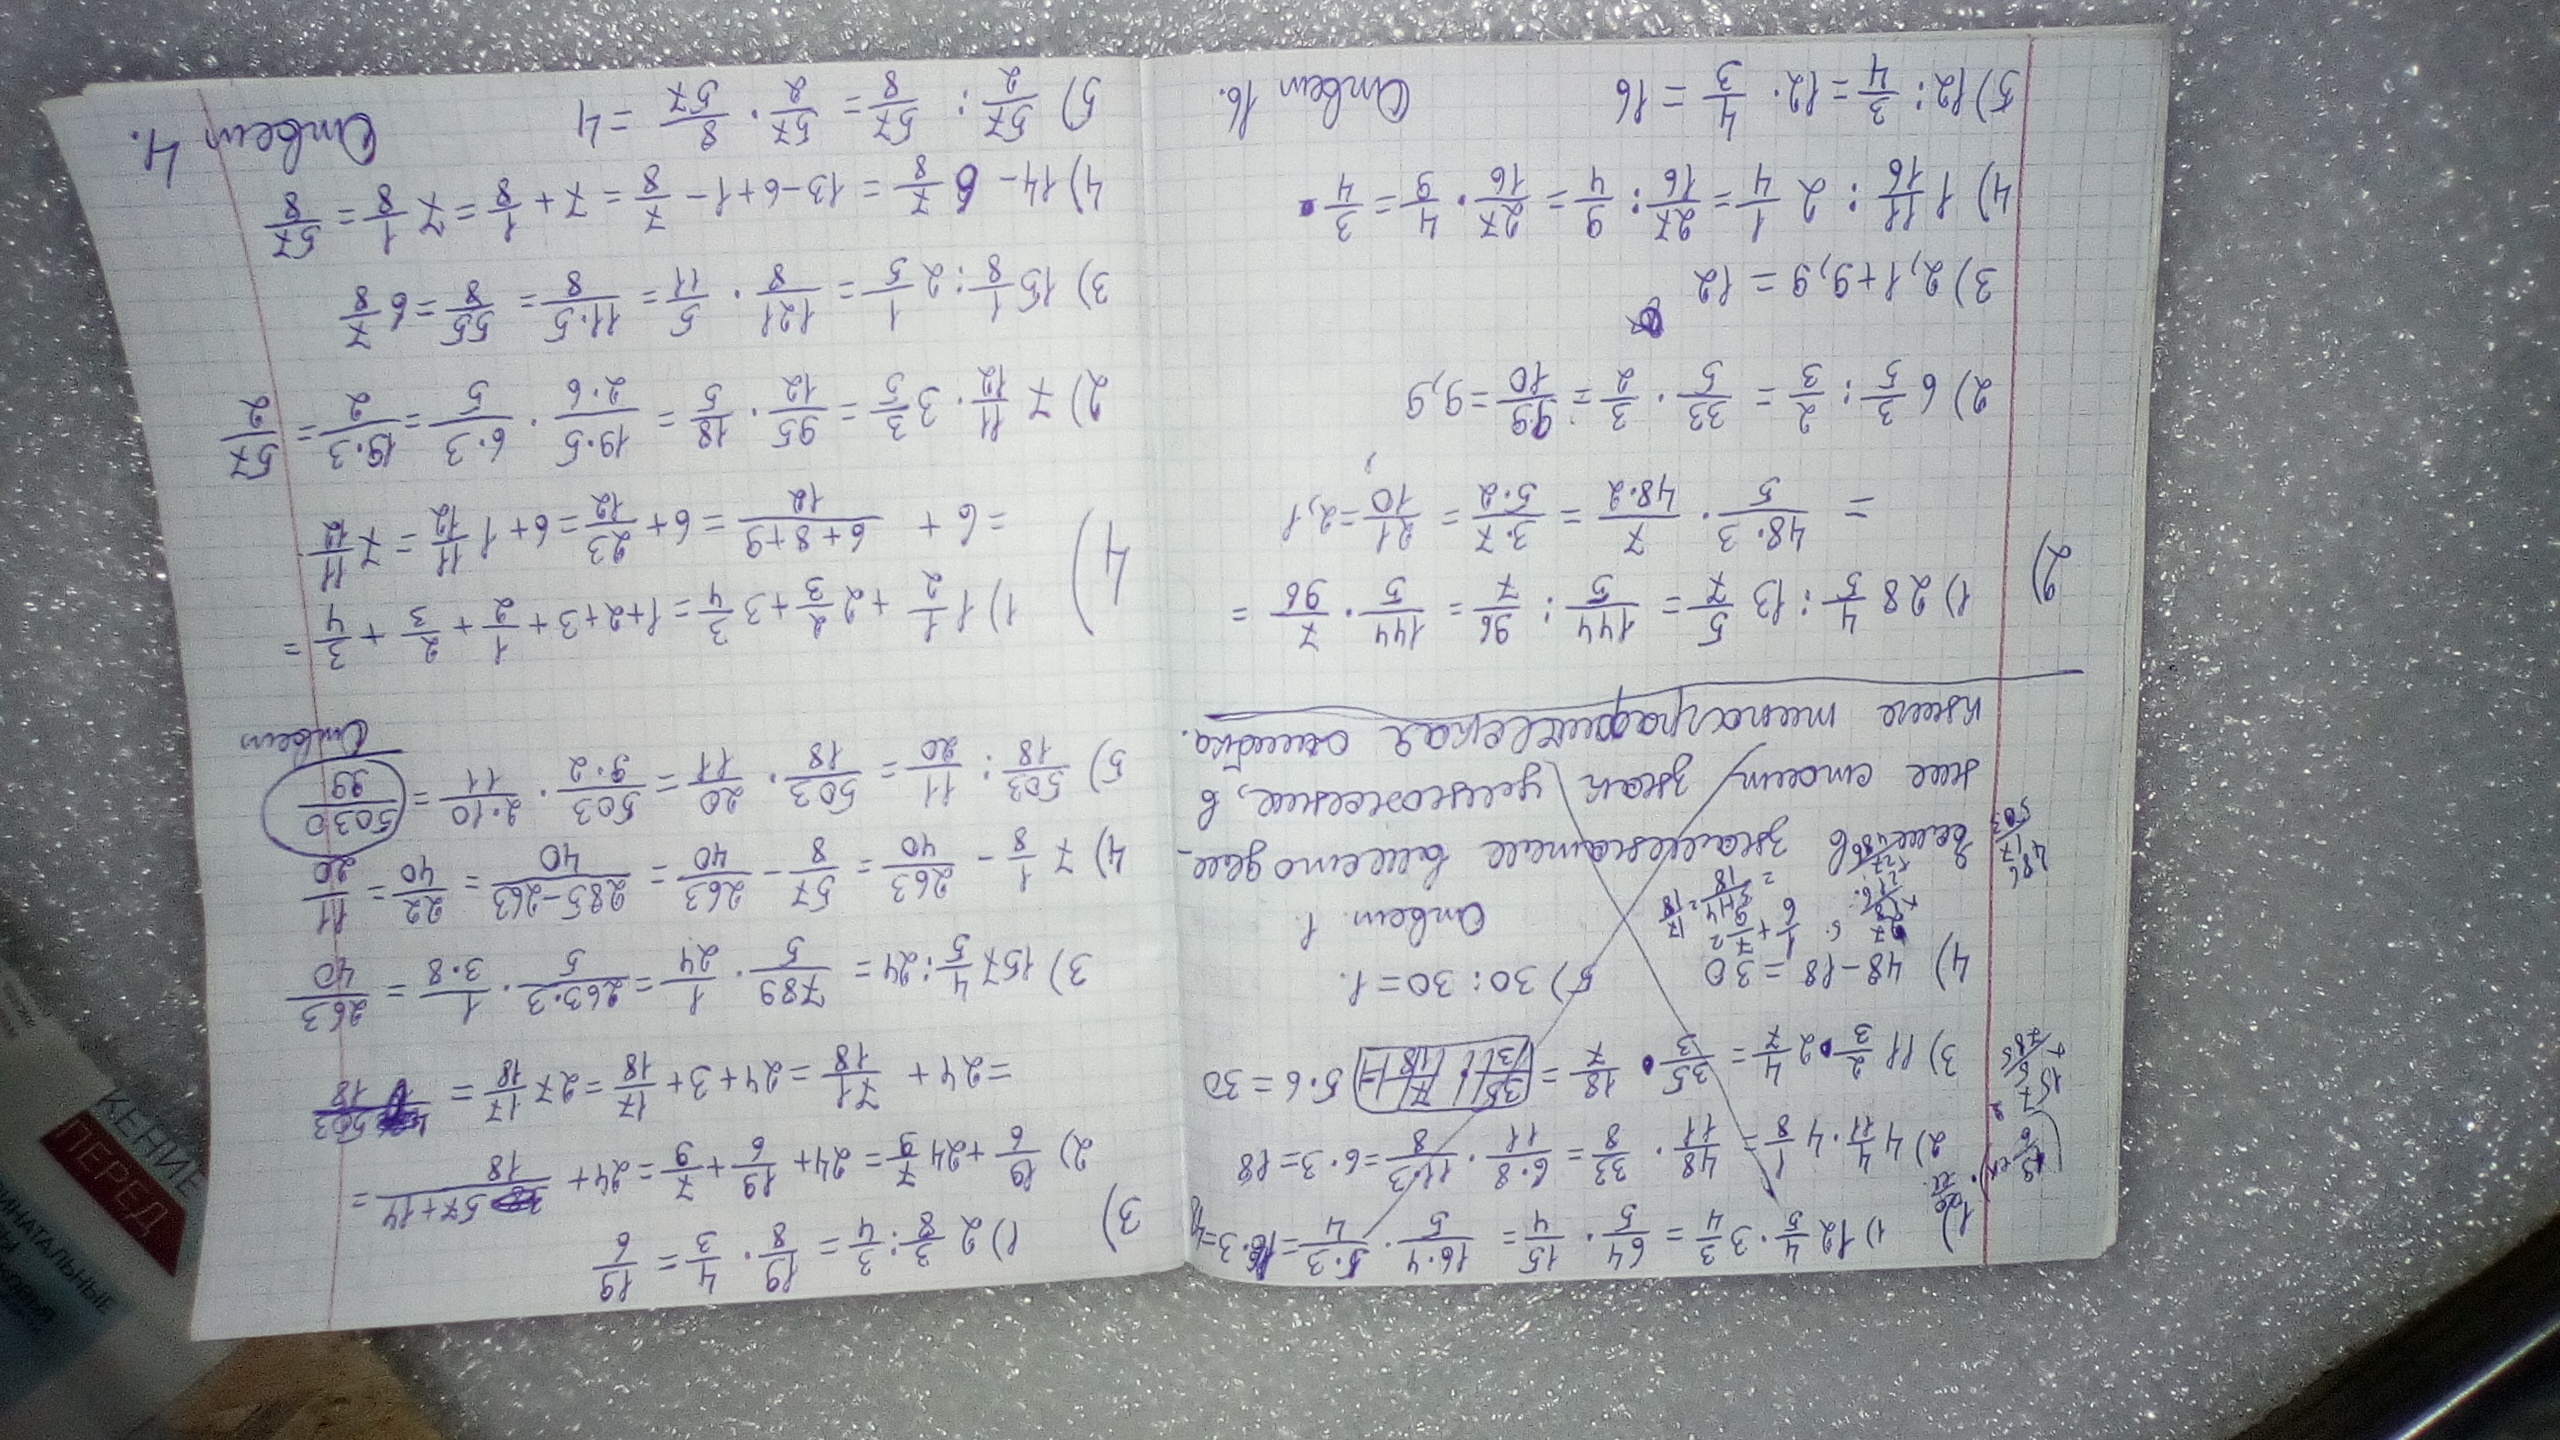 1) 1) 12 4/5 · 3 3/4 = 64/5 · 15/4 = 16·4/5 · 5·3/4 = 16·3=48
2) 4 4/11 · 4 1/8 = 48/11 · 33/8 = 6·8/11 · 11·3/8 = 6·3=18
3) 11 2/3 · 2 4/7 = 35/3 · 18/7 = 5·6=30
4) 48-18=30
5) 30:30=1.
Ответ 1.
1/6 + 7/9
3+14/18 = 17/18
в знаменателе вместо деле-
ние стоит знак умножение, в
книге типографическая ошибка.
2)
1) 28 4/5 : 13 5/7 = 144/5 : 96/7 = 144/5 · 7/96 =
= 48·3/5 · 7/48·2 = 3·7/5·2 = 21/10 = 2,1
2) 6 3/5 : 2/3 = 33/5 · 3/2 = 99/10 = 9,9
3) 2,1+9,9=12
4) 1 11/16 : 2 1/4 = 27/16 : 9/4 = 27/16 · 4/9 = 3/4
5) 12 : 3/4 = 12 · 4/3 = 16
Ответ 16.
3)
1) 2 3/8 : 3/4 = 19/8 · 4/3 = 19/6
2) 19/6 + 24 7/9 = 24 + 19/6 + 7/9 = 24 + 57+14/18 =
= 24 + 71/18 = 24+3+ 17/18 = 27 17/18 = 503/18
3) 157 4/5 : 24 = 789/5 · 1/24 = 263·3/5 · 1/3·8 = 263/40
4) 7 1/8 - 263/40 = 57/8 - 263/40 = 285-263/40 = 22/40 = 11/20
5) 503/18 : 11/20 = 503/18 · 20/11 = 503/9·2 · 2·10/11 = 5030/99
Ответ
4)
1) 1 1/2 + 2 2/3 + 3 3/4 = 1+2+3+ 1/2 + 2/3 + 3/4 =
= 6 + 6+8+9/12 = 6 + 23/12 = 6+1 11/12 = 7 11/12
2) 7 11/12 · 3 3/5 = 95/12 · 18/5 = 19·5/2·6 · 6·3/5 = 19·3/2 = 57/2
3) 15 1/8 : 2 1/5 = 121/8 · 5/11 = 11·5/8 = 55/8 = 6 7/8
4) 14 - 6 7/8 = 13-6+1- 7/8 = 7+ 1/8 = 7 1/8 = 57/8
5) 57/2 : 57/8 = 57/2 · 8/57 = 4
Ответ 4.
КЕНИЕ
ПЕРЕД